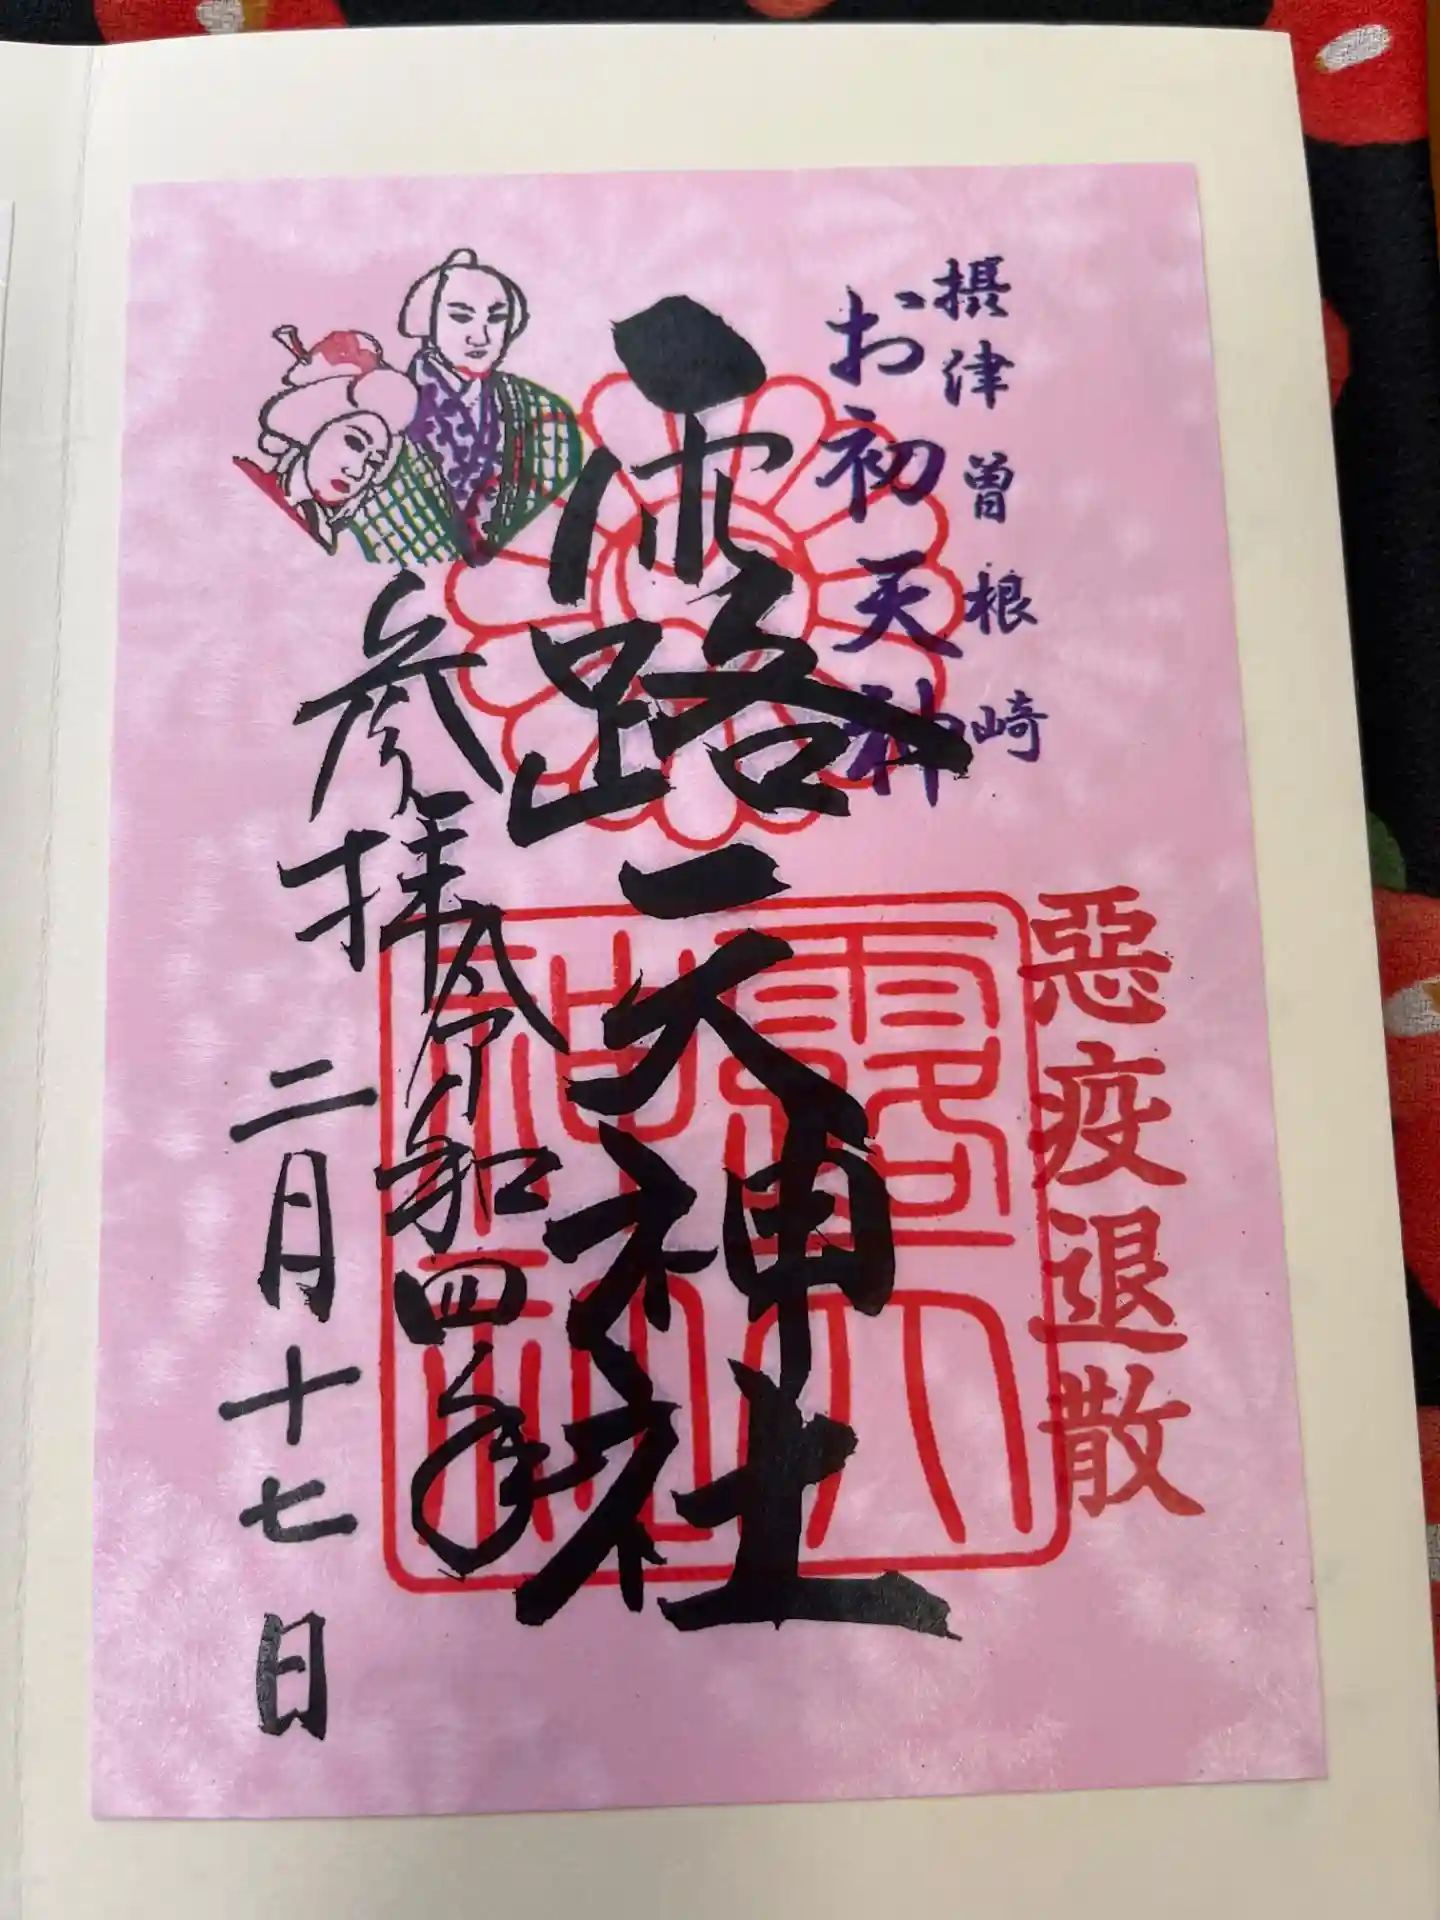 摂津曽根崎
お初天神
悪疫退散
露天神社
露天神社
参拝
令和四年
二月十七日